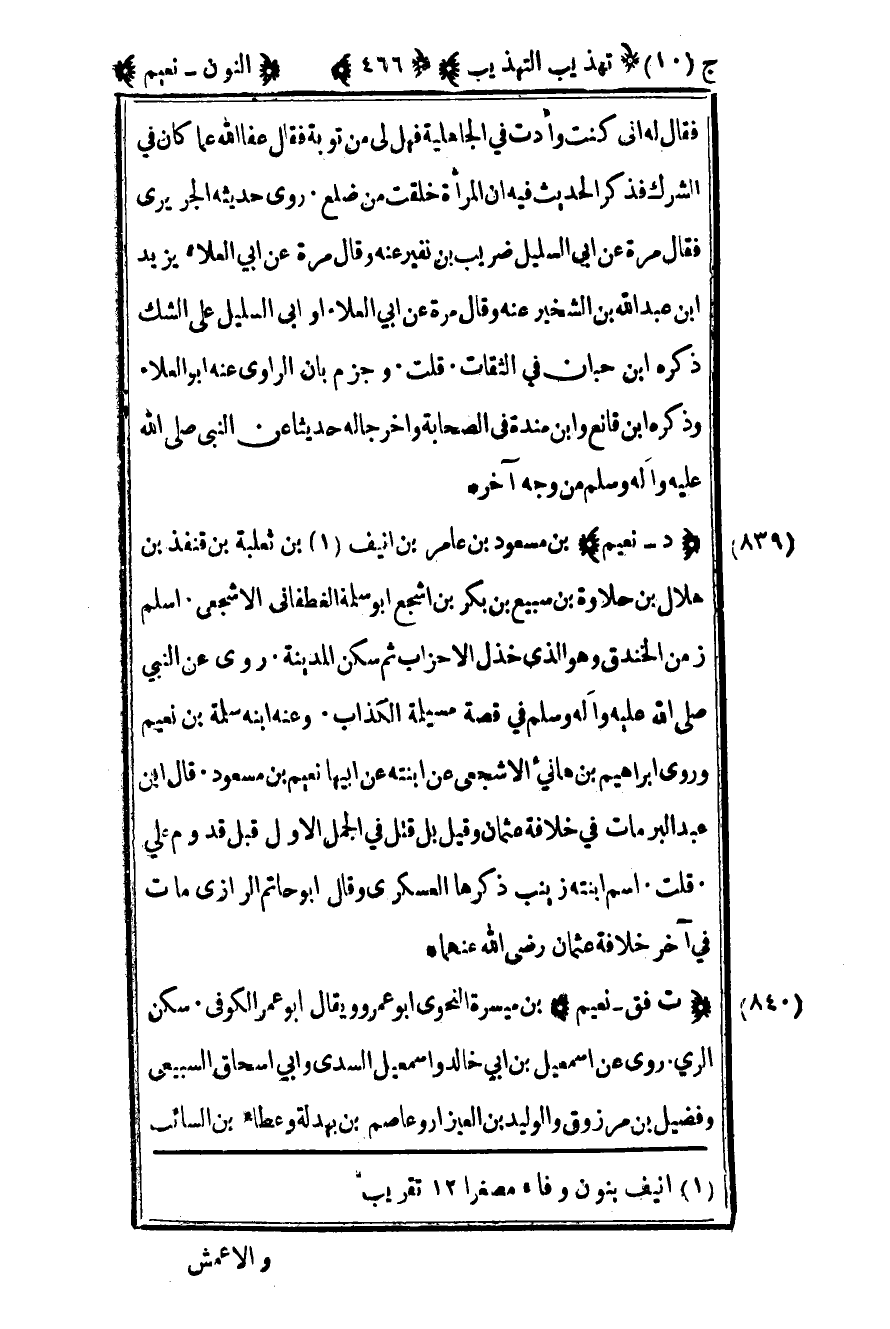 ج (١٠) ﴿ تهذيب التهذيب ﴾ ﴿ ٤٦٦ ﴾ ﴿ النون ـ نعيم ﴾
فقال له انى كنت وأدت في الجاهلية فهل لى من توبة فقال عفا الله عما كان في
الشرك فذكر الحديث فيه ان المرأة خلقت من ضلع ٠ روى حديثه الجريرى
فقال مرة عن ابي السليل ضريب بن نفير عنه وقال مرة عن ابي العلاء يزيد
ابن عبد الله بن الشخير عنه وقال مرة عن ابي العلاء او ابى السليل على الشك
ذكره ابن حبان في الثقات ٠ قلت ٠ وجزم بان الراوى عنه ابو العلاء
وذكره ابن قانع وابن مندة فى الصحابة واخرجا له حديثا عن النبى صلى الله
عليه وآله وسلم من وجه آخر ٭
(٨٣٩) ﴿ د ـ نعيم ﴾ بن مسعود بن عامر بن انيف (١) بن ثعلبة بن قنفذ بن
هلال بن حلاوة بن سبيع بن بكر بن اشجع ابو سلمة الغطفانى الاشجعى ٠ اسلم
زمن الخندق وهو الذى خذل الاحزاب ثم سكن المدينة ٠ روى عن النبي
صلى الله عليه وآله وسلم في قصة مسيلمة الكذاب ٠ وعنه ابنه سلمة بن نعيم
وروى ابراهيم بن هانئ الاشجعى عن ابنته عن ابيها نعيم بن مسعود ٠ قال ابن
عبد البر مات في خلافة عثمان وقيل بل قتل في الجمل الاول قبل قدوم علي
٠ قلت ٠ اسم ابنته زينب ذكرها العسكرى وقال ابو حاتم الرازى مات
في آخر خلافة عثمان رضى الله عنهما ٭
(٨٤٠) ﴿ ت فق ـ نعيم ﴾ بن ميسرة النحوى ابو عمرو ويقال ابو عمر الكوفى ٠ سكن
الري ٠ روى عن اسمعيل بن ابي خالد واسمعيل السدى وابي اسحاق السبيعى
وفضيل بن مرزوق والوليد بن العيزار وعاصم بن بهدلة وعطاء بن السائب
(١) انيف بنون وفاء مصغرا ١٢ تقريب
والاعمش